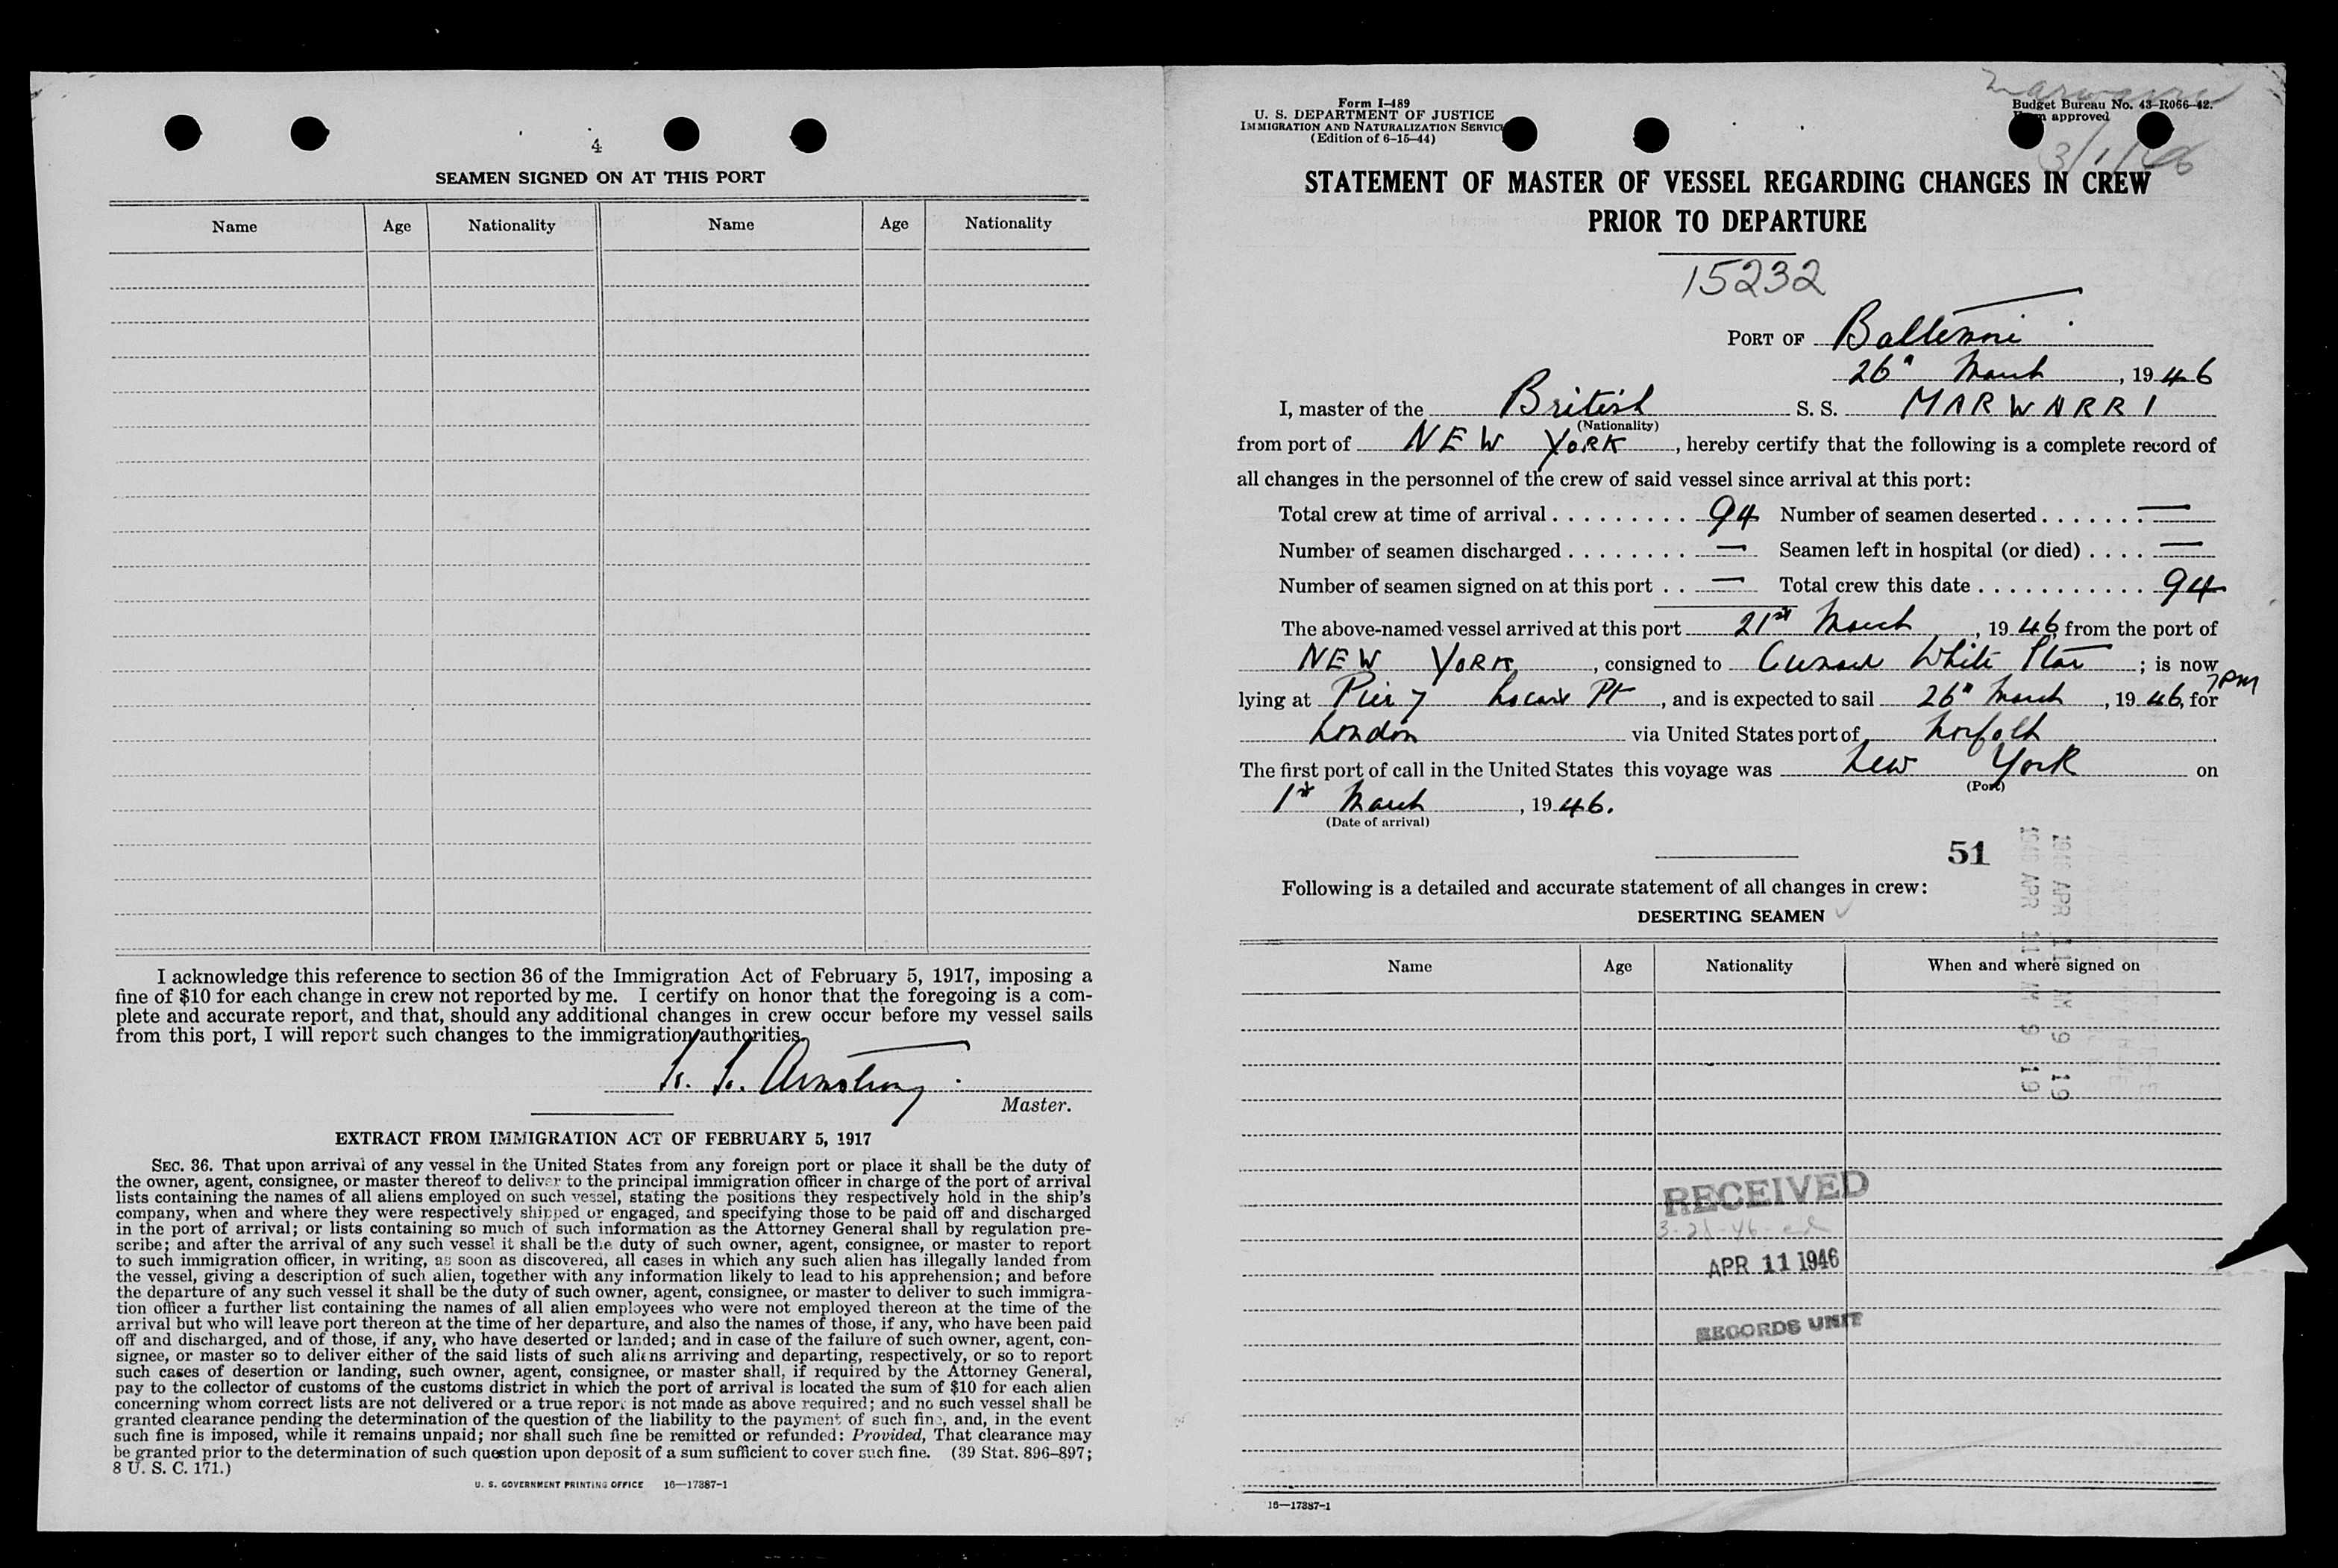 4
SEAMEN SIGNED ON AT THIS PORT
Name Age Nationality Name Age Nationality
I acknowledge this reference to section 36 of the Immigration Act of February 5, 1917, imposing a
fine of $10 for each change in crew not reported by me. I certify on honor that the foregoing is a com-
plete and accurate report, and that, should any additional changes in crew occur before my vessel sails
from this port, I will report such changes to the immigration authorities.
Armstrong
Master.
EXTRACT FROM IMMIGRATION ACT OF FEBRUARY 5, 1917
SEC. 36. That upon arrival of any vessel in the United States from any foreign port or place it shall be the duty of
the owner, agent, consignee, or master thereof to deliver to the principal immigration officer in charge of the port of arrival
lists containing the names of all aliens employed on such vessel, stating the positions they respectively hold in the ship's
company, when and where they were respectively shipped or engaged, and specifying those to be paid off and discharged
in the port of arrival; or lists containing so much of such information as the Attorney General shall by regulation pre-
scribe; and after the arrival of any such vessel it shall be the duty of such owner, agent, consignee, or master to report
to such immigration officer, in writing, as soon as discovered, all cases in which any such alien has illegally landed from
the vessel, giving a description of such alien, together with any information likely to lead to his apprehension; and before
the departure of any such vessel it shall be the duty of such owner, agent, consignee, or master to deliver to such immigra-
tion officer a further list containing the names of all alien employees who were not employed thereon at the time of the
arrival but who will leave port thereon at the time of her departure, and also the names of those, if any, who have been paid
off and discharged, and of those, if any, who have deserted or landed; and in case of the failure of such owner, agent, con-
signee, or master so to deliver either of the said lists of such aliens arriving and departing, respectively, or so to report
such cases of desertion or landing, such owner, agent, consignee, or master shall, if required by the Attorney General,
pay to the collector of customs of the customs district in which the port of arrival is located the sum of $10 for each alien
concerning whom correct lists are not delivered or a true report is not made as above required; and no such vessel shall be
granted clearance pending the determination of the question of the liability to the payment of such fine, and, in the event
such fine is imposed, while it remains unpaid; nor shall such fine be remitted or refunded: Provided, That clearance may
be granted prior to the determination of such question upon deposit of a sum sufficient to cover such fine. (39 Stat. 896–897;
8 U. S. C. 171.)
U. S. GOVERNMENT PRINTING OFFICE 16—17387-1
Form I-489
U. S. DEPARTMENT OF JUSTICE
IMMIGRATION AND NATURALIZATION SERVICE
(Edition of 6-15-44)
Budget Bureau No. 43-R066-42.
approved
3/1/46
STATEMENT OF MASTER OF VESSEL REGARDING CHANGES IN CREW
PRIOR TO DEPARTURE
15232
PORT OF Baltimore
26" March, 1946
I, master of the British S. S. MARWARRI
(Nationality)
from port of NEW YORK, hereby certify that the following is a complete record of
all changes in the personnel of the crew of said vessel since arrival at this port:
Total crew at time of arrival . . . . . . . . . . 94 Number of seamen deserted . . . . . . . —
Number of seamen discharged . . . . . . . . — Seamen left in hospital (or died) . . . . —
Number of seamen signed on at this port . . — Total crew this date . . . . . . . . . . . . 94
The above-named vessel arrived at this port 21st March, 1946 from the port of
NEW YORK, consigned to Cunard White Star; is now
7PM
lying at Pier 7 Locust Pt, and is expected to sail 26" March, 1946, for
London via United States port of Norfolk
The first port of call in the United States this voyage was New York on
(Port)
1st March, 1946.
(Date of arrival)
51
Following is a detailed and accurate statement of all changes in crew:
DESERTING SEAMEN
Name Age Nationality When and where signed on
1946 APR 11 AM 9 19
1946 APR 11 AM 9 19
RECEIVED
APR 11 1946
RECORDS UNIT
16—17387-1